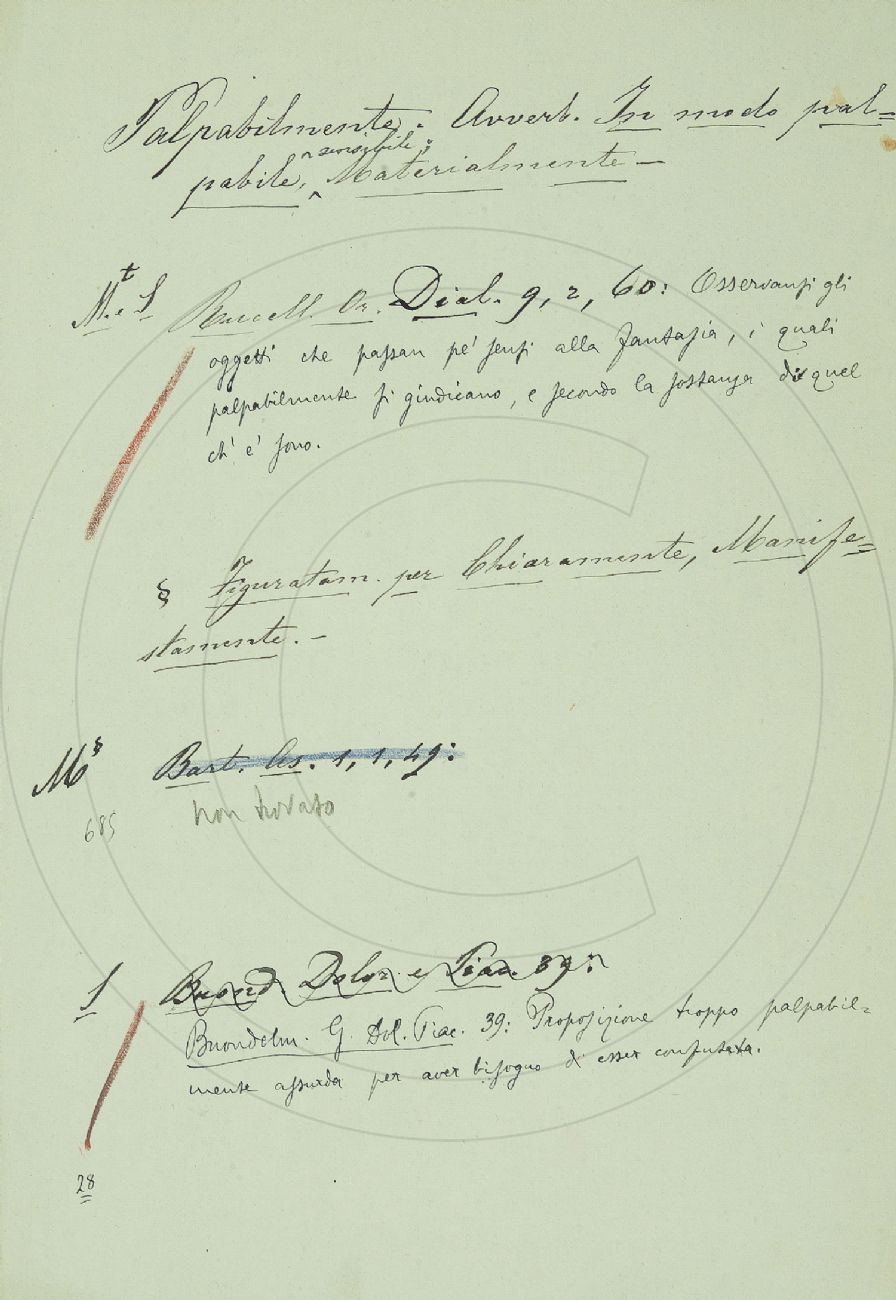 Palpabilmente. Avverb. In modo pal=
pabile, sensibile; Materialmente —
M.t e S Rucell. Or. Dial. 9, 2, 60: Osservansi gli
oggetti che passan pe' sensi alla fantasia, i quali
palpabilmente si giudicano, e secondo la sostanza di quel
ch' e' sono.
§ Figuratam. per Chiaramente, Manife=
stamente. —
M§ Bart. As. 1, 1, 49:
non trovato
685
S Buond. Dolor. e Piac. 39:
Buondelm. G. Dol. Piac. 39: Proposizione troppo palpabil=
mente assurda per aver bisogno di esser confutata.
28